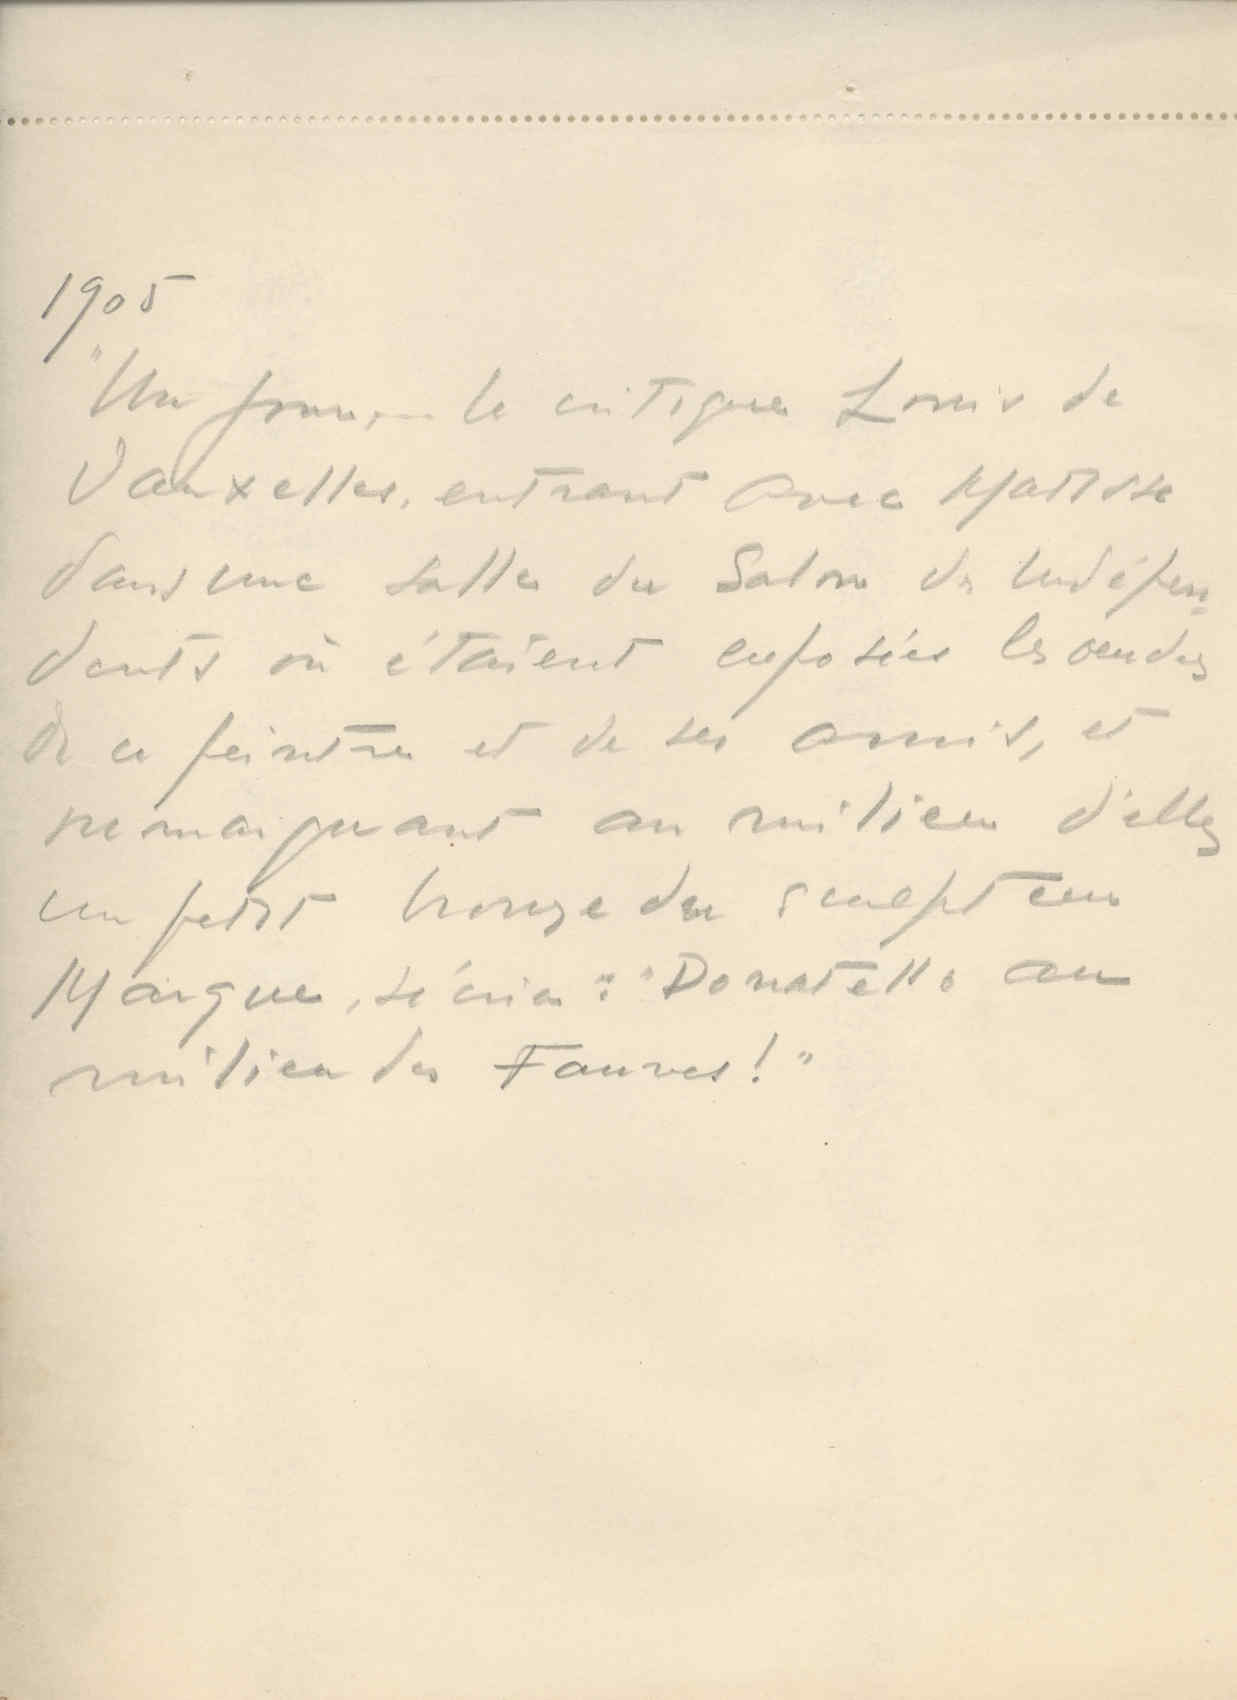 1905
"Un jour, le critique Louis de
Vauxelles, entrant avec Matisse
dans une salle du Salon des Indépen-
dants où étaient exposées les œuvres
de ce peintre et de ses amis, et
remarquant au milieu d'elles
un petit bronze du sculpteur
Marque, s'écria : "Donatello au
milieu des Fauves!"